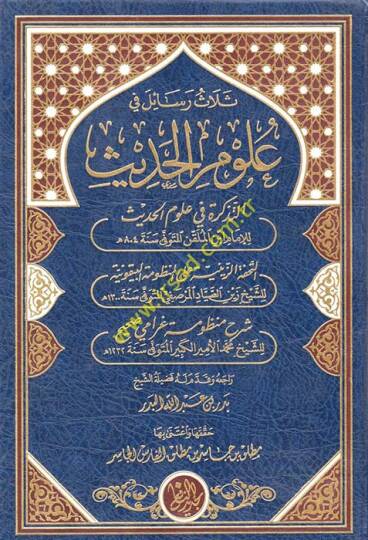 ثلاث رسائل في
علوم الحديث
التذكرة في علوم الحديث
للإمام ابن الملقن المتوفى سنة ٨٠٤هـ
التحفة الزينية على المنظومة البيقونية
للشيخ زين الصياد المرصفي المتوفى سنة ١٣٠٠هـ
شرح منظومة غرامي صحيح
للشيخ محمد الأمير الكبير المتوفى سنة ١٢٣٢هـ
راجعه وقدم له فضيلة الشيخ
بدر بن عبد الله البدر
حققها واعتنى بها
مطلق بن جاسر بن مطلق الفارس الجاسر